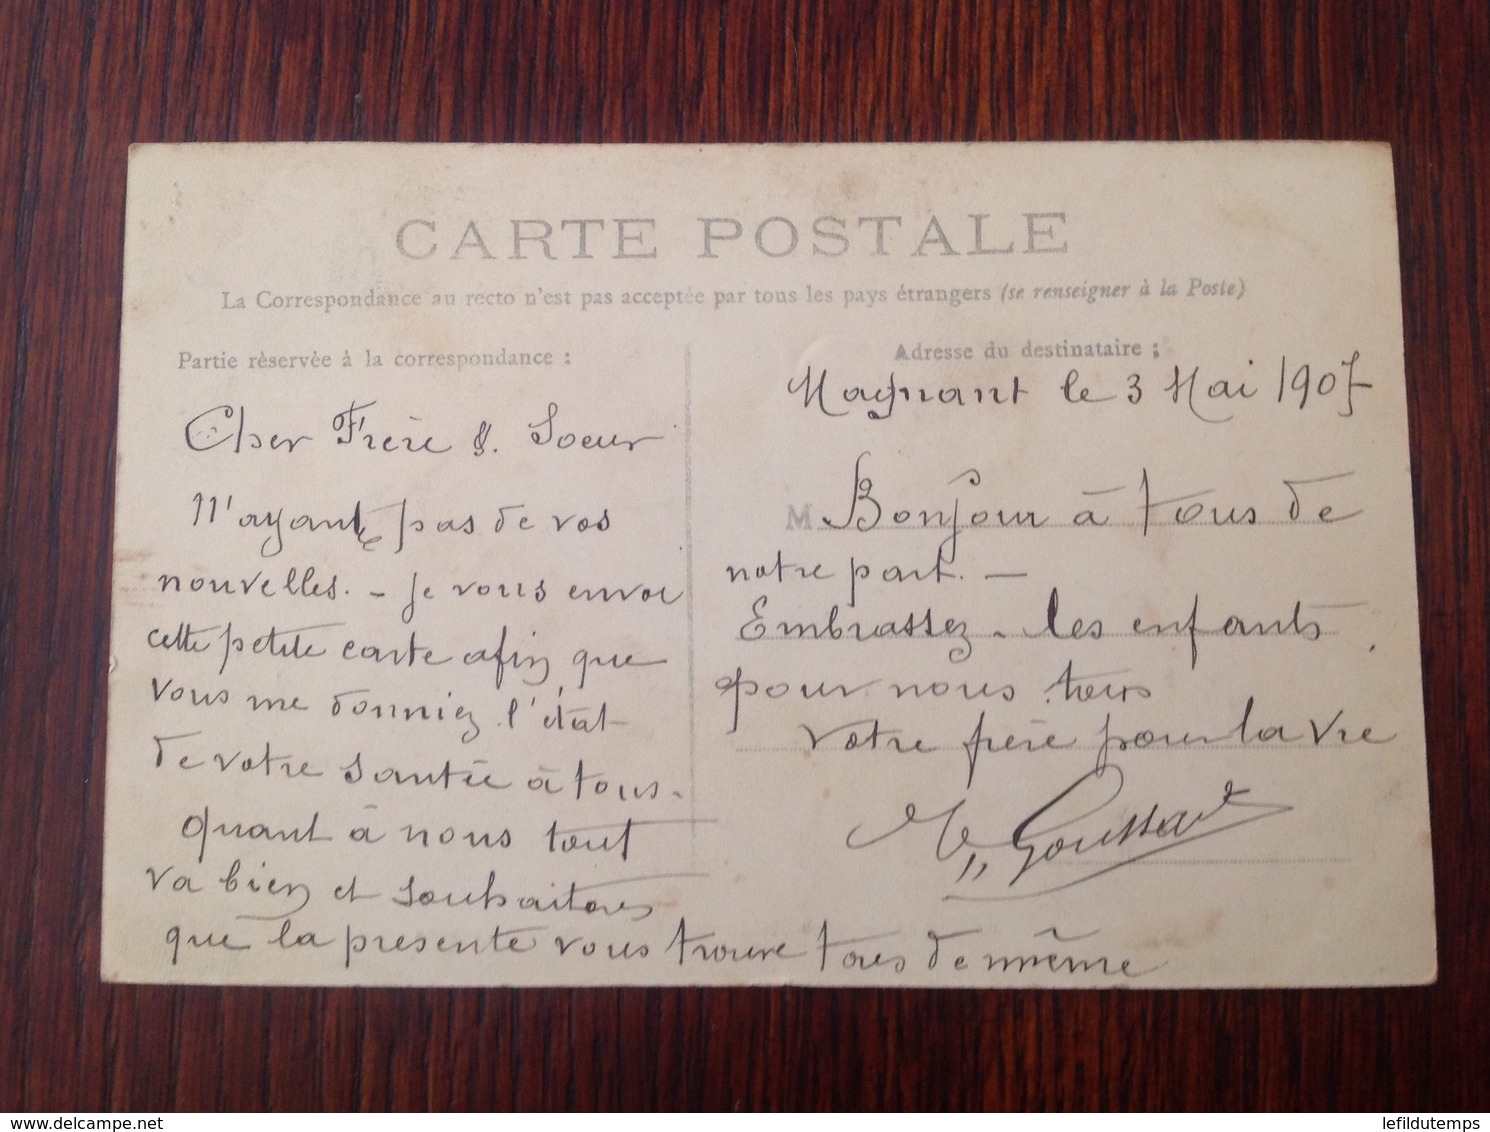 CARTE POSTALE
La Correspondance au recto n'est pas acceptée par tous les pays étrangers (se renseigner à la Poste)
Partie réservée à la correspondance :
Cher Frère & Soeur
N'ayant pas de vos
nouvelles. - je vous envoi
cette petite carte afin que
vous me donniez l'état
de votre santée à tous.
quant à nous tout
va bien et souhaitons
que la présente vous trouve tous de même
Adresse du destinataire :
Magnant le 3 Mai 1907
M
Bonjour à tous de
notre part. -
Embrassez - les enfants
pour nous tous
Votre frère pour la vie
Goussard
lefildutemps